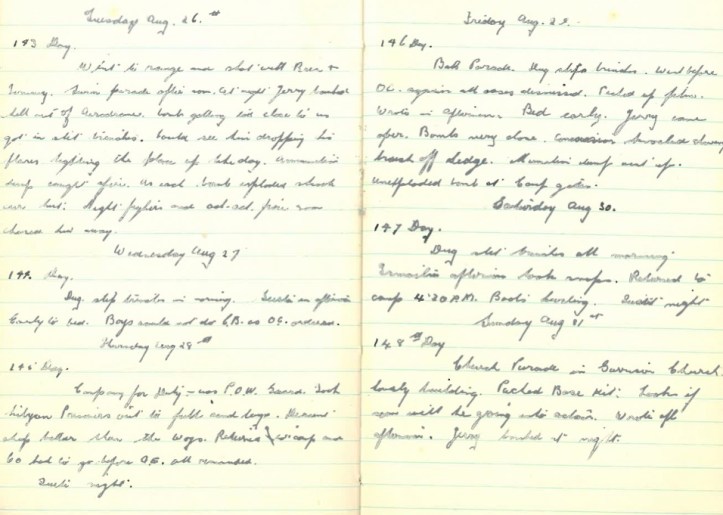 Tuesday Aug. 26.th
143 Day.
Went to range and shot with Bren &
Tommy. parade after noon. At night Jerry bombed
hell out of Aerodrome. bombs getting too close to us
got in slit trenches. Could see him dropping his
flares lighting the place up like day. Ammunition
dump caught afire. As each bomb exploded shook
. Night fighters and act-act. fire soon
chased him away.
Wednesday Aug 27
144. Day.
Dug slit trenches in morning. in afternoon
Early to bed. Boys would not do C.B. as O.C. ordered.
Thursday Aug 28th
145 Day.
Company for Duty - was P.O.W. Guard. Took
Libyan Prisoners out to fill sand bags. Decent
chaps better than the Wogs. Returned to camp and
60 had to go before O.C. all remanded.
Quiet night.
Friday Aug. 29.
146 Day.
Bath Parade. Dug slit trenches. Went before
O.C. again all cases dismissed. Picked up films.
Wrote in afternoon. Bed early. Jerry came
over. Bombs very close. Concussion knocked down
hedge. Munition dump went up.
Unexploded bomb at Camp gates.
Saturday Aug 30.
147 Day.
Dug slit trenches all morning.
Ismailia afternoon took snaps. Returned to
camp 4.30 A.M. Quiet night
Sunday Aug 31st
148th Day
Church Parade in Garrison Church.
lovely building. Packed Base Kit. Looks if
soon will be going into action. Wrote all
afternoon. Jerry bombed at night.